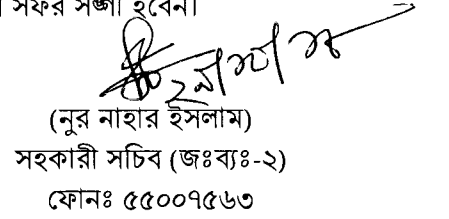 সফর সঙ্গী হবেন।
ইসলাম
(নুর নাহার ইসলাম)
সহকারী সচিব (জঃব্যঃ-২)
ফোনঃ ৫৫০০৭৫৬৩